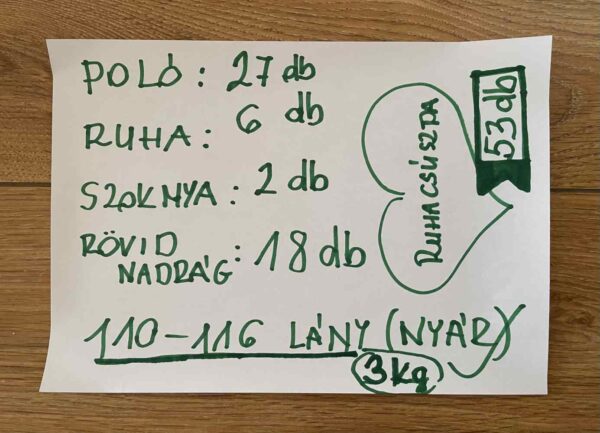 POLÓ: 27 db
RUHA: 6 db
SZOKNYA: 2 db
RÖVID
NADRÁG: 18 db
110-116 LÁNY (NYÁR)
3kg
RUHACSÚSZTA
53 db